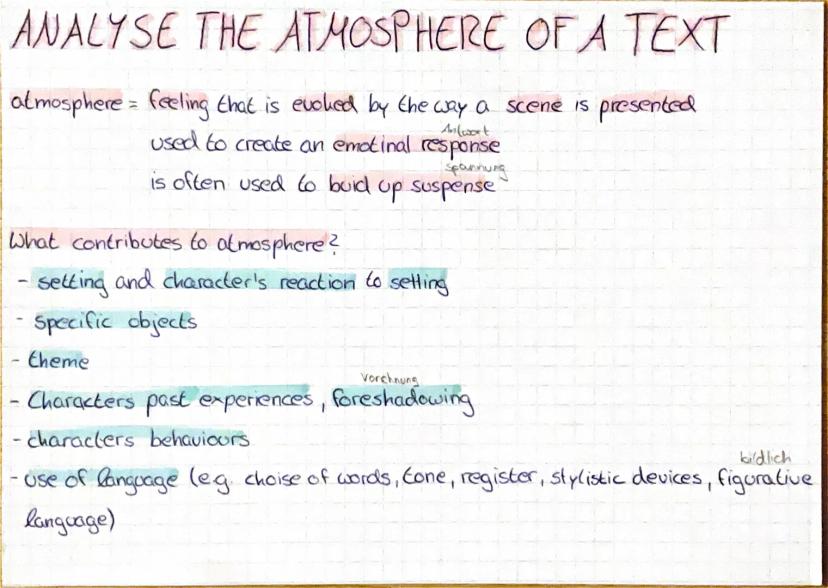 ANALYSE THE ATMOSPHERE OF A TEXT
atmosphere = feeling that is evoked by the way a scene is presented
Antwort
used to create an emotinal response
Spannung
is often used to buid up suspense
What contributes to atmosphere?
- setting and character's reaction to setting
- specific objects
- theme
Vorahnung
- Characters past experiences, foreshadowing
- characters behaviours
bildlich
- use of language (e.g. choise of words, tone, register, stylistic devices, figurative
language)